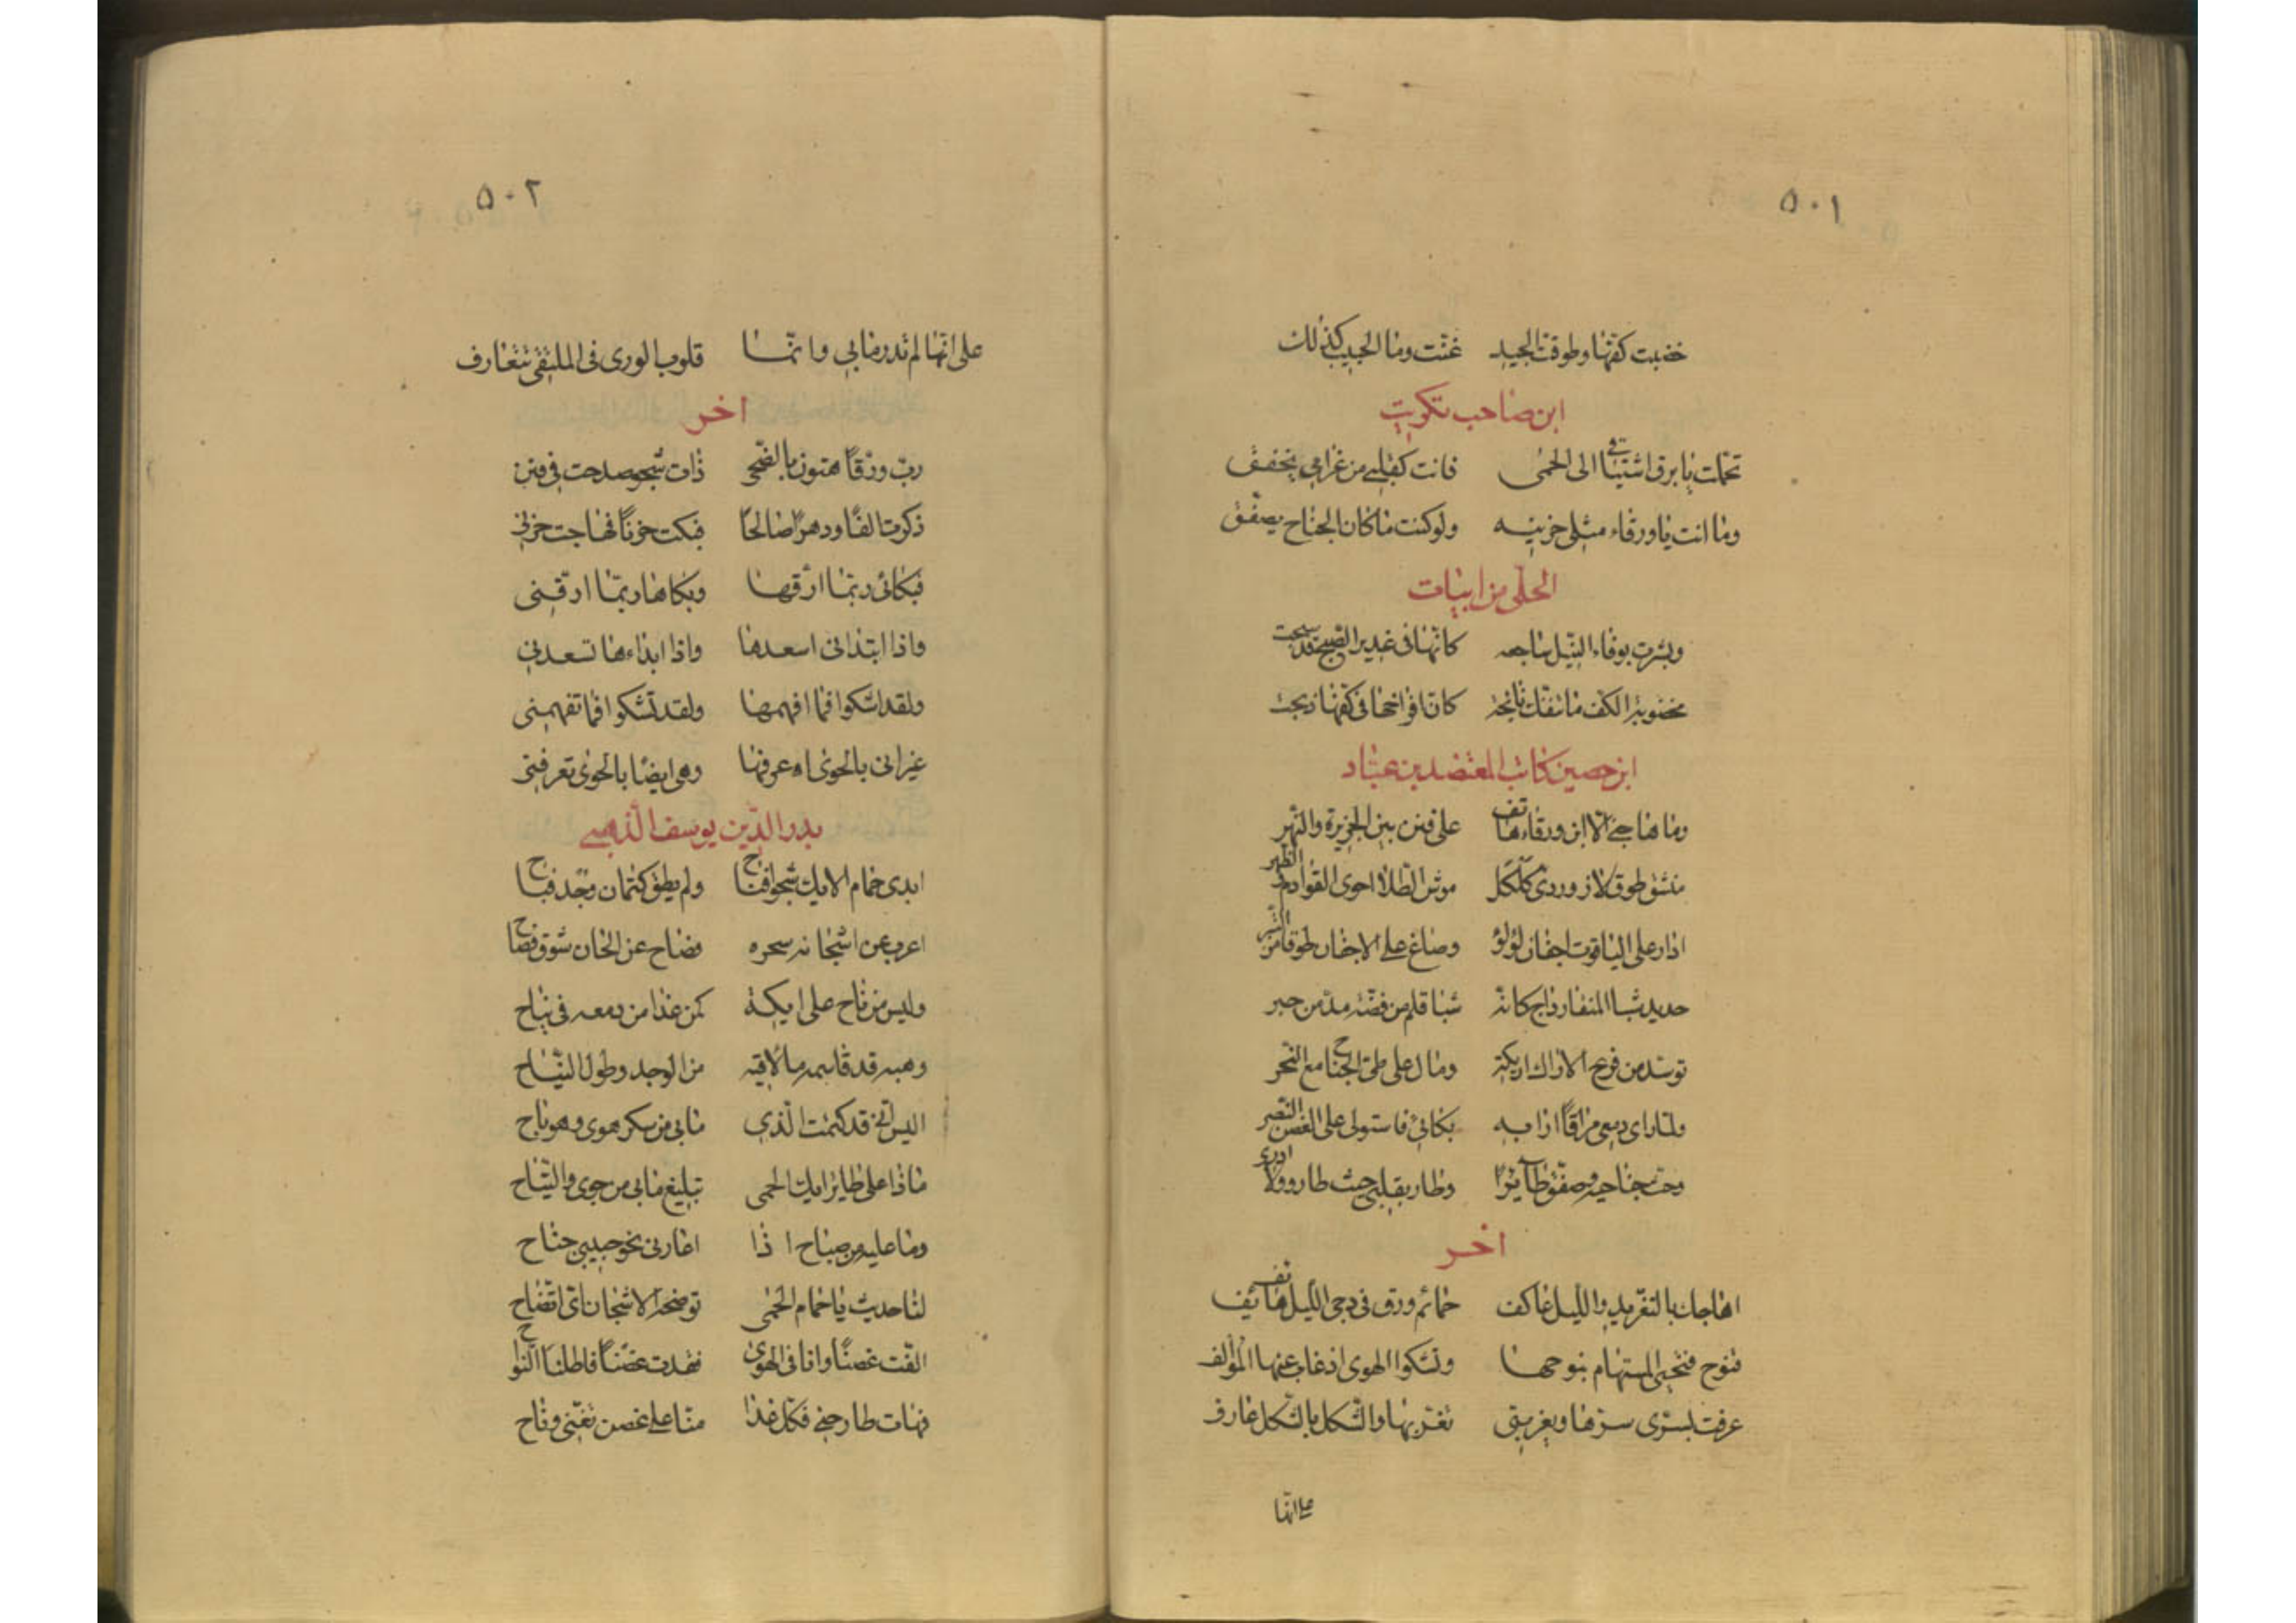 ٥٠١
خضبت كفها وطوقت الجيد غنت وما الحبيب كذلك
ابن صاحب تكريت
تحملت يا برق اشتياقي الى الحمى فانت كقلبي من غرامي يخفق
وما انت يا ورقاء مثلي حزينه ولو كنت ما كان الجناح يصفّق
الحلّى من ابيات
وبشرت بوفاء النيل ساجعه كانّها فى غدير الصبح قد سبحت
مخضوبة الكف ما تنفك نائحة كان افراخها فى كفها ذبحت
ابن حصين كاتب المعتضد بن عباد
وما هاجني الّا ابن ورقاء هاتف على فنن بين الجزيرة والنّهر
مفستق طوق لازوردى كلكل موشى الطلا احوى القوادم الظهر
ادار على الياقوت اجفان لؤلؤ وصاغ على الاجفان طوقا من التبر
حديد شبا المنقار داج كانه شبا قلم من فضة مدّ من حبر
توسّد من فرع الاراك اريكة ومال على طىّ الجناح مع النحر
ولمّا راى دمعي مراقاً ارابه بكائي فاستولى على الغصن النضر
وحث جناحيه وصفق طائرًا وطار بقلبي حيث طار ولا ادرى
اخر
اهاجك بالتغريد والليل عاكف حمائم ورق فى دجى الليل هاتف
تنوح فتحيى المستهام بنوحها وتشكوا الهوى اذ غاب عنها المؤالف
عرفت بسرّى سرّها وبغربتى تغربها والشكل بالشكل عارف
على انّها
٥٠٢
على انّها لم تدر ما بي وانّما قلوب الورى فى الملتقى تتعارف
اخر
ربّ ورقاً هتوف بالضحى ذات شجو صدحت فى فنن
ذكرت الفًا ودهرًا صالحًا فبكت حزنًا فهاجت حزنى
فبكائى ربّما ارّقها وبكاها ربّما ارّقنى
واذا ابتدانى اسعدها واذا ابداءها تسعدنى
ولقد اشكوا فما افهمها ولقد تشكوا فما تفهمنى
غير انى بالجوى اعرفها وهى ايضًا بالجوى تعرفنى
بدر الدّين يوسف الذهبي
ابدى حمام الايك شجوا فناح ولم يطق كتمان وجد فباح
اعرب عن اشجانه سحره فصاح عن الحان شوق فصاح
وليس من ناح على ايكة كمن غدا من دمعه فى نياح
وهبه قد قاسمه ما ألاقيه من الوجد وطول النّياح
اليس انّى قد كتمت الّذي ما بى من سكر هوى وهو باح
ماذا على طاير ايك الحمى تبليغ ما بى من جوى والتياح
وما عليه من جناح اذا اعارنى نحو حبيبى جناح
لنا حديث يا حمام الحمى توضحه الاشجان اى اتضاح
الفت غصنًا وانا فى الهوى فقدت غصنًا فاطلنا النواح
فهات طارحنى فكل غدا منّا على غصن تغنّى وناح